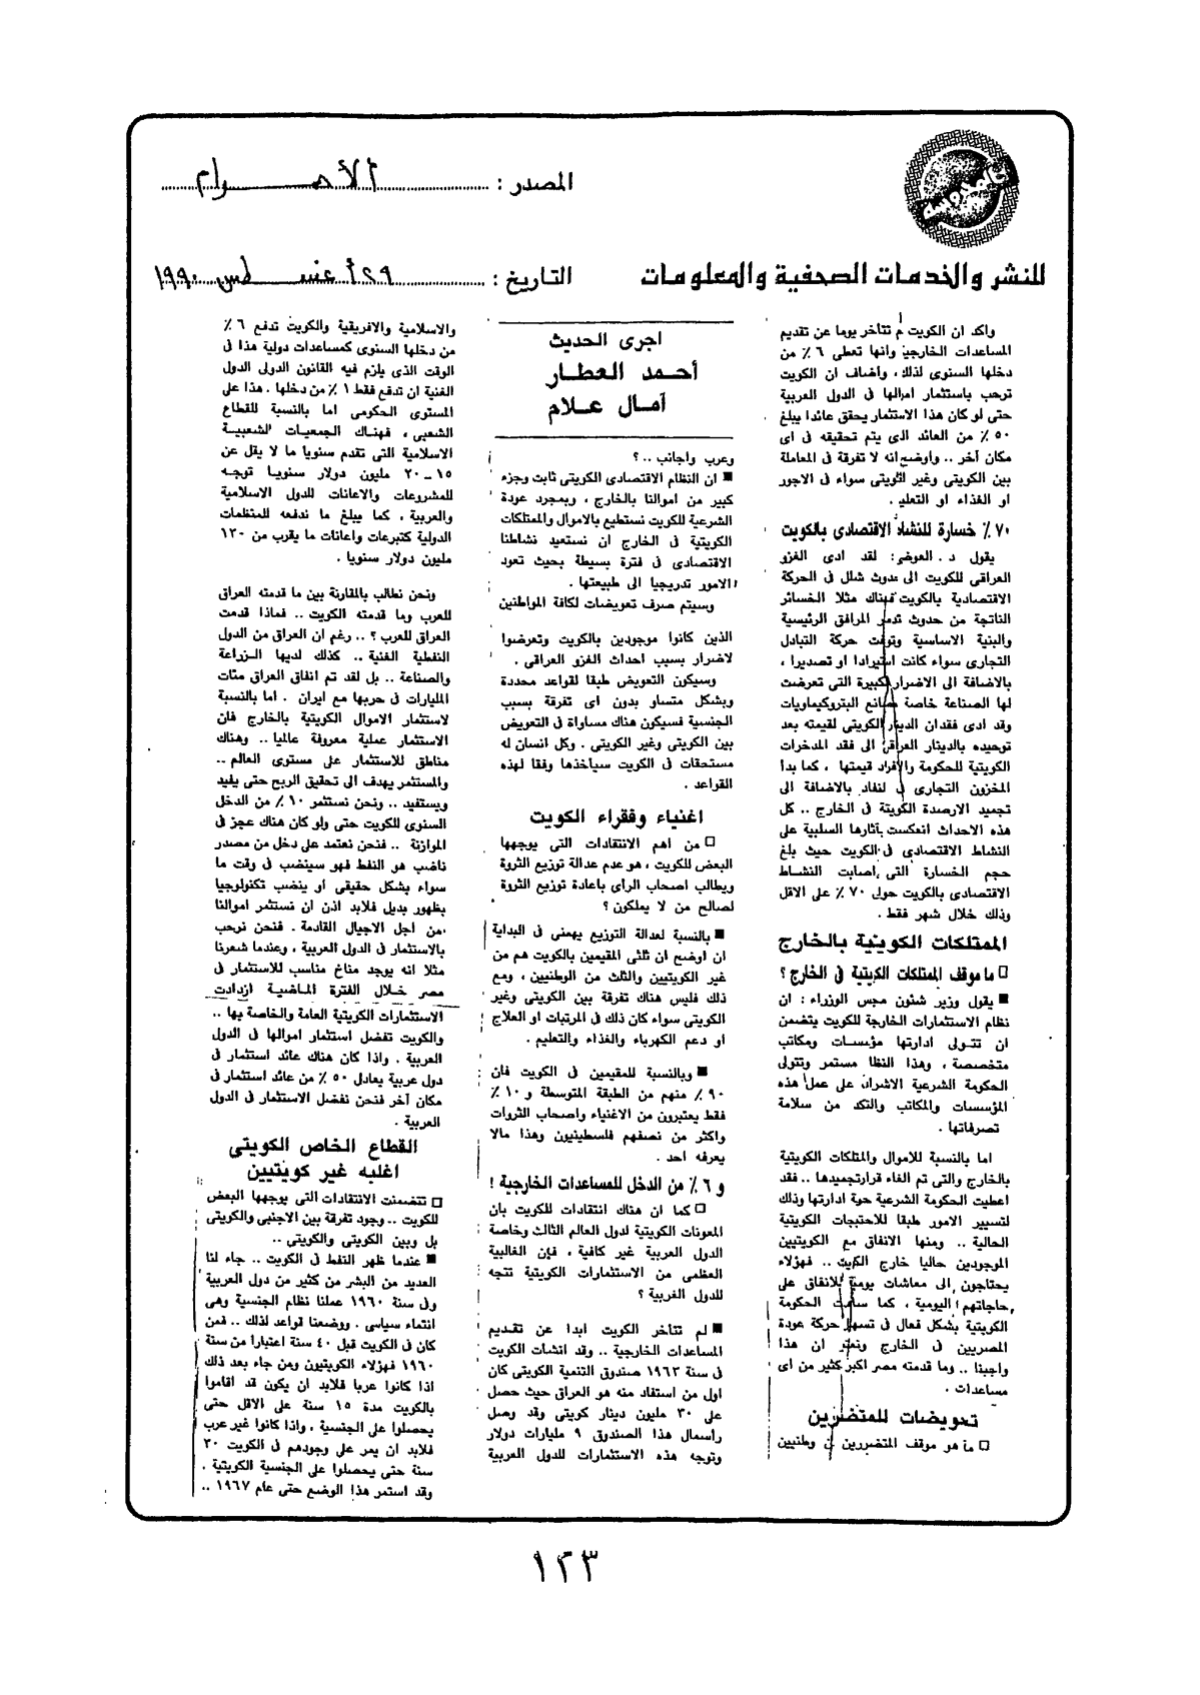 المصدر : الأهرام
للنشر والخدمات الصحفية والمعلومات
التاريخ : ٢٩ أغسطس ١٩٩٠
واكد ان الكويت لم تتأخر يوما عن تقديم
المساعدات الخارجية وانها تعطى ٦ ٪ من
دخلها السنوى لذلك ، واضاف ان الكويت
ترحب باستثمار اموالها فى الدول العربية
حتى لو كان هذا الاستثمار يحقق عائدا يبلغ
٥٠ ٪ من العائد الذى يتم تحقيقه فى اى
مكان آخر .. وأوضح انه لا تفرقة فى المعاملة
بين الكويتى وغير الكويتى سواء فى الاجور
او الغذاء او التعليم .
٧٠ ٪ خسارة للنشاط الاقتصادى بالكويت
يقول د . العوضى : لقد ادى الغزو
العراقى للكويت الى حدوث شلل فى الحركة
الاقتصادية بالكويت فهناك مثلا الخسائر
الناتجة من حدوث تدمير المرافق الرئيسية
والبنية الاساسية وتوقف حركة التبادل
التجارى سواء كانت استيرادا او تصديرا ،
بالاضافة الى الاضرار الكبيرة التى تعرضت
لها الصناعة خاصة مصانع البتروكيماويات
وقد ادى فقدان الدينار الكويتى لقيمته بعد
توحيده بالدينار العراقى الى فقد المدخرات
الكويتية للحكومة والافراد قيمتها ، كما بدأ
المخزون التجارى فى النفاد بالاضافة الى
تجميد الارصدة الكويتية فى الخارج .. كل
هذه الاحداث انعكست بآثارها السلبية على
النشاط الاقتصادى فى الكويت حيث بلغ
حجم الخسارة التى اصابت النشاط
الاقتصادى بالكويت حوالى ٧٠ ٪ على الاقل
وذلك خلال شهر فقط .
الممتلكات الكويتية بالخارج
□ ما موقف الممتلكات الكويتية فى الخارج ؟
■ يقول وزير شئون مجلس الوزراء : ان
نظام الاستثمارات الخارجية للكويت يتضمن
ان تتولى ادارتها مؤسسات ومكاتب
متخصصة ، وهذا النظام مستمر وتتولى
الحكومة الشرعية الاشراف على عمل هذه
المؤسسات والمكاتب والتأكد من سلامة
تصرفاتها .
اما بالنسبة للاموال والممتلكات الكويتية
بالخارج والتى تم الغاء قرار تجميدها .. فقد
اعطيت الحكومة الشرعية حرية ادارتها وذلك
لتسيير الامور طبقا للاحتياجات الكويتية
الحالية .. ومنها الانفاق مع الكويتيين
الموجودين حاليا خارج الكويت .. فهؤلاء
يحتاجون الى معاشات يومية للانفاق على
حاجاتهم اليومية ، كما ساهمت الحكومة
الكويتية بشكل فعال فى تسهيل حركة عودة
المصريين فى الخارج ونعتبر ان هذا
واجبنا .. وما قدمته مصر اكبر كثير من اى
مساعدات .
تعويضات للمتضررين
□ ما هو موقف المتضررين من وطنيين
اجرى الحديث
أحمد العطار
آمال علام
وعرب واجانب .. ؟
■ ان النظام الاقتصادى الكويتى ثابت وجزء
كبير من اموالنا بالخارج ، وبمجرد عودة
الشرعية للكويت نستطيع بالاموال والممتلكات
الكويتية فى الخارج ان نستعيد نشاطنا
الاقتصادى فى فترة بسيطة بحيث تعود
الامور تدريجيا الى طبيعتها .
وسيتم صرف تعويضات لكافة المواطنين
الذين كانوا موجودين بالكويت وتعرضوا
لاضرار بسبب احداث الغزو العراقى .
وسيكون التعويض طبقا لقواعد محددة
وبشكل متساو بدون اى تفرقة بسبب
الجنسية فسيكون هناك مساواة فى التعويض
بين الكويتى وغير الكويتى . وكل انسان له
مستحقات فى الكويت سيأخذها وفقا لهذه
القواعد .
اغنياء وفقراء الكويت
□ من اهم الانتقادات التى يوجهها
البعض للكويت ، هو عدم عدالة توزيع الثروة
ويطالب اصحاب الرأى باعادة توزيع الثروة
لصالح من لا يملكون ؟
■ بالنسبة لعدالة التوزيع يهمنى فى البداية
ان اوضح ان ثلثى المقيمين بالكويت هم من
غير الكويتيين والثلث من الوطنيين ، ومع
ذلك فليس هناك تفرقة بين الكويتى وغير
الكويتى سواء كان ذلك فى المرتبات او العلاج
او دعم الكهرباء والغذاء والتعليم .
■ وبالنسبة للمقيمين فى الكويت فان
٩٠ ٪ منهم من الطبقة المتوسطة و ١٠ ٪
فقط يعتبرون من الاغنياء واصحاب الثروات
واكثر من نصفهم فلسطينيون وهذا مالا
يعرفه احد .
و ٦ ٪ من الدخل للمساعدات الخارجية !
□ كما ان هناك انتقادات للكويت بان
المعونات الكويتية لدول العالم الثالث وخاصة
الدول العربية غير كافية ، فإن الغالبية
العظمى من الاستثمارات الكويتية تتجه
للدول الغربية ؟
■ لم تتأخر الكويت ابدا عن تقديم
المساعدات الخارجية .. وقد انشأت الكويت
فى سنة ١٩٦٣ صندوق التنمية الكويتى كان
اول من استفاد منه هو العراق حيث حصل
على ٣٠ مليون دينار كويتى وقد وصل
رأسمال هذا الصندوق ٩ مليارات دولار
وتوجه هذه الاستثمارات للدول العربية
والاسلامية والافريقية والكويت تدفع ٦ ٪
من دخلها السنوى كمساعدات دولية هذا فى
الوقت الذى يلزم فيه القانون الدولى الدول
الغنية ان تدفع فقط ١ ٪ من دخلها . هذا على
المستوى الحكومى اما بالنسبة للقطاع
الشعبى ، فهناك الجمعيات الشعبية
الاسلامية التى تقدم سنويا ما لا يقل عن
١٥ ـ ٢٠ مليون دولار سنويا توجه
للمشروعات والاعانات للدول الاسلامية
والعربية ، كما يبلغ ما ندفعه للمنظمات
الدولية كتبرعات واعانات ما يقرب من ١٣٠
مليون دولار سنويا .
ونحن نطالب بالمقارنة بين ما قدمته العراق
للعرب وما قدمته الكويت .. فماذا قدمت
العراق للعرب ؟ .. رغم ان العراق من الدول
النفطية الغنية .. كذلك لديها الزراعة
والصناعة .. بل لقد تم انفاق العراق مئات
المليارات فى حربها مع ايران . اما بالنسبة
لاستثمار الاموال الكويتية بالخارج فان
الاستثمار عملية معروفة عالميا .. وهناك
مناطق للاستثمار على مستوى العالم ..
والمستثمر يهدف الى تحقيق الربح حتى يفيد
ويستفيد .. ونحن نستثمر ١٠ ٪ من الدخل
السنوى للكويت حتى ولو كان هناك عجز فى
الموازنة .. فنحن نعتمد على دخل من مصدر
ناضب هو النفط فهو سينضب فى وقت ما
سواء بشكل حقيقى او ينضب تكنولوجيا
بظهور بديل فلابد اذن ان نستثمر اموالنا
من اجل الاجيال القادمة . فنحن نرحب
بالاستثمار فى الدول العربية ، وعندما شعرنا
مثلا انه يوجد مناخ مناسب للاستثمار فى
مصر خلال الفترة الماضية ازدادت
الاستثمارات الكويتية العامة والخاصة بها ..
والكويت تفضل استثمار اموالها فى الدول
العربية . واذا كان هناك عائد استثمار فى
دول عربية يعادل ٥٠ ٪ من عائد استثمار فى
مكان آخر فنحن نفضل الاستثمار فى الدول
العربية .
القطاع الخاص الكويتى
اغلبه غير كويتيين
□ تتضمنت الانتقادات التى يوجهها البعض
للكويت .. وجود تفرقة بين الاجنبى والكويتى
بل وبين الكويتى والكويتى ..
■ عندما ظهر النفط فى الكويت .. جاء لنا
العديد من البشر من كثير من دول العربية
وفى سنة ١٩٦٠ عملنا نظام الجنسية وهى
انتماء سياسى . ووضعنا قواعد لذلك .. فمن
كان فى الكويت قبل ٤٠ سنة اعتبارا من سنة
١٩٦٠ فهؤلاء الكويتيون ومن جاء بعد ذلك
اذا كانوا عربا فلابد ان يكون قد اقاموا
بالكويت مدة ١٥ سنة على الاقل حتى
يحصلوا على الجنسية ، واذا كانوا غير عرب
فلابد ان يمر على وجودهم فى الكويت ٢٠
سنة حتى يحصلوا على الجنسية الكويتية .
وقد استمر هذا الوضع حتى عام ١٩٦٧ ..
١٢٣